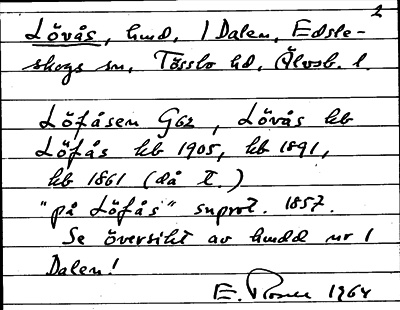 2
Lövås, hmd, 1 Dalen, Edsle-
skogs sn, Tössbo hd, Älvsb. l.
Löfåsen G62, Lövås kb
Löfås kb 1905, kb 1891,
kb 1861 (då t.)
"på Löfås" snprot. 1857.
Se översikt av hmdd nr 1
Dalen!
E. 1964